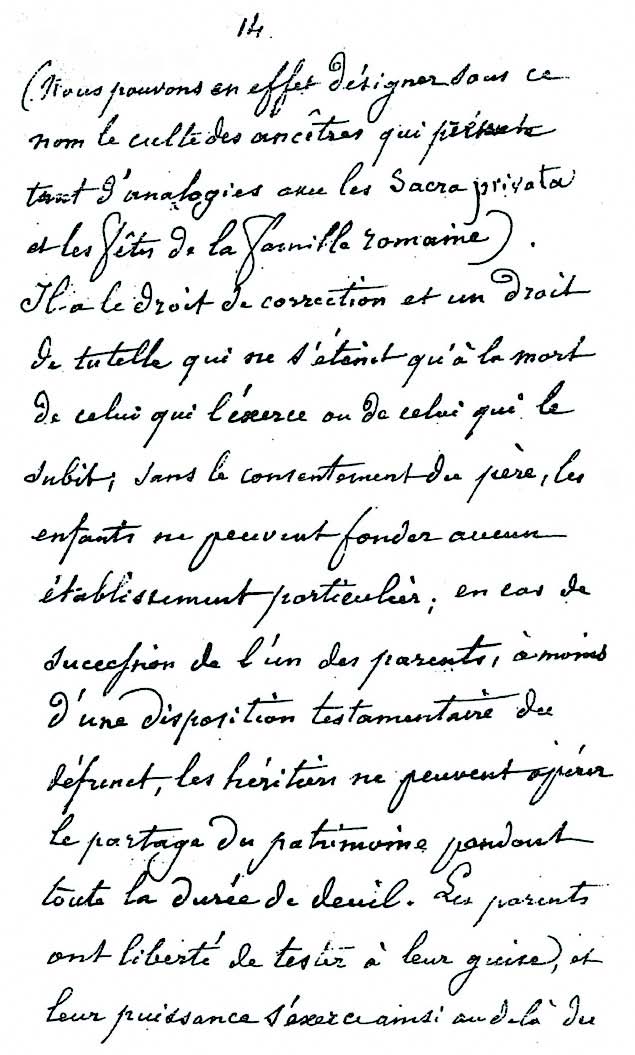 14.
(Nous pouvons en effet désigner sous ce
nom le culte des ancêtres qui présente
tant d'analogies avec les Sacra privata
et les fêtes de la famille romaine).
Il a le droit de correction et un droit
de tutelle qui ne s'éteint qu'à la mort
de celui qui l'éxerce ou de celui qui le
subit; sans le consentement du père, les
enfants ne peuvent fonder aucun
établissement particulier; en cas de
succession de l'un des parents, à moins
d'une disposition testamentaire du
défunct, les héritiers ne peuvent opérer
le partage du patrimoine pendant
toute la durée de deuil. Les parents
ont liberté de tester à leur guise, et
leur puissance s'éxerce ainsi au delà du